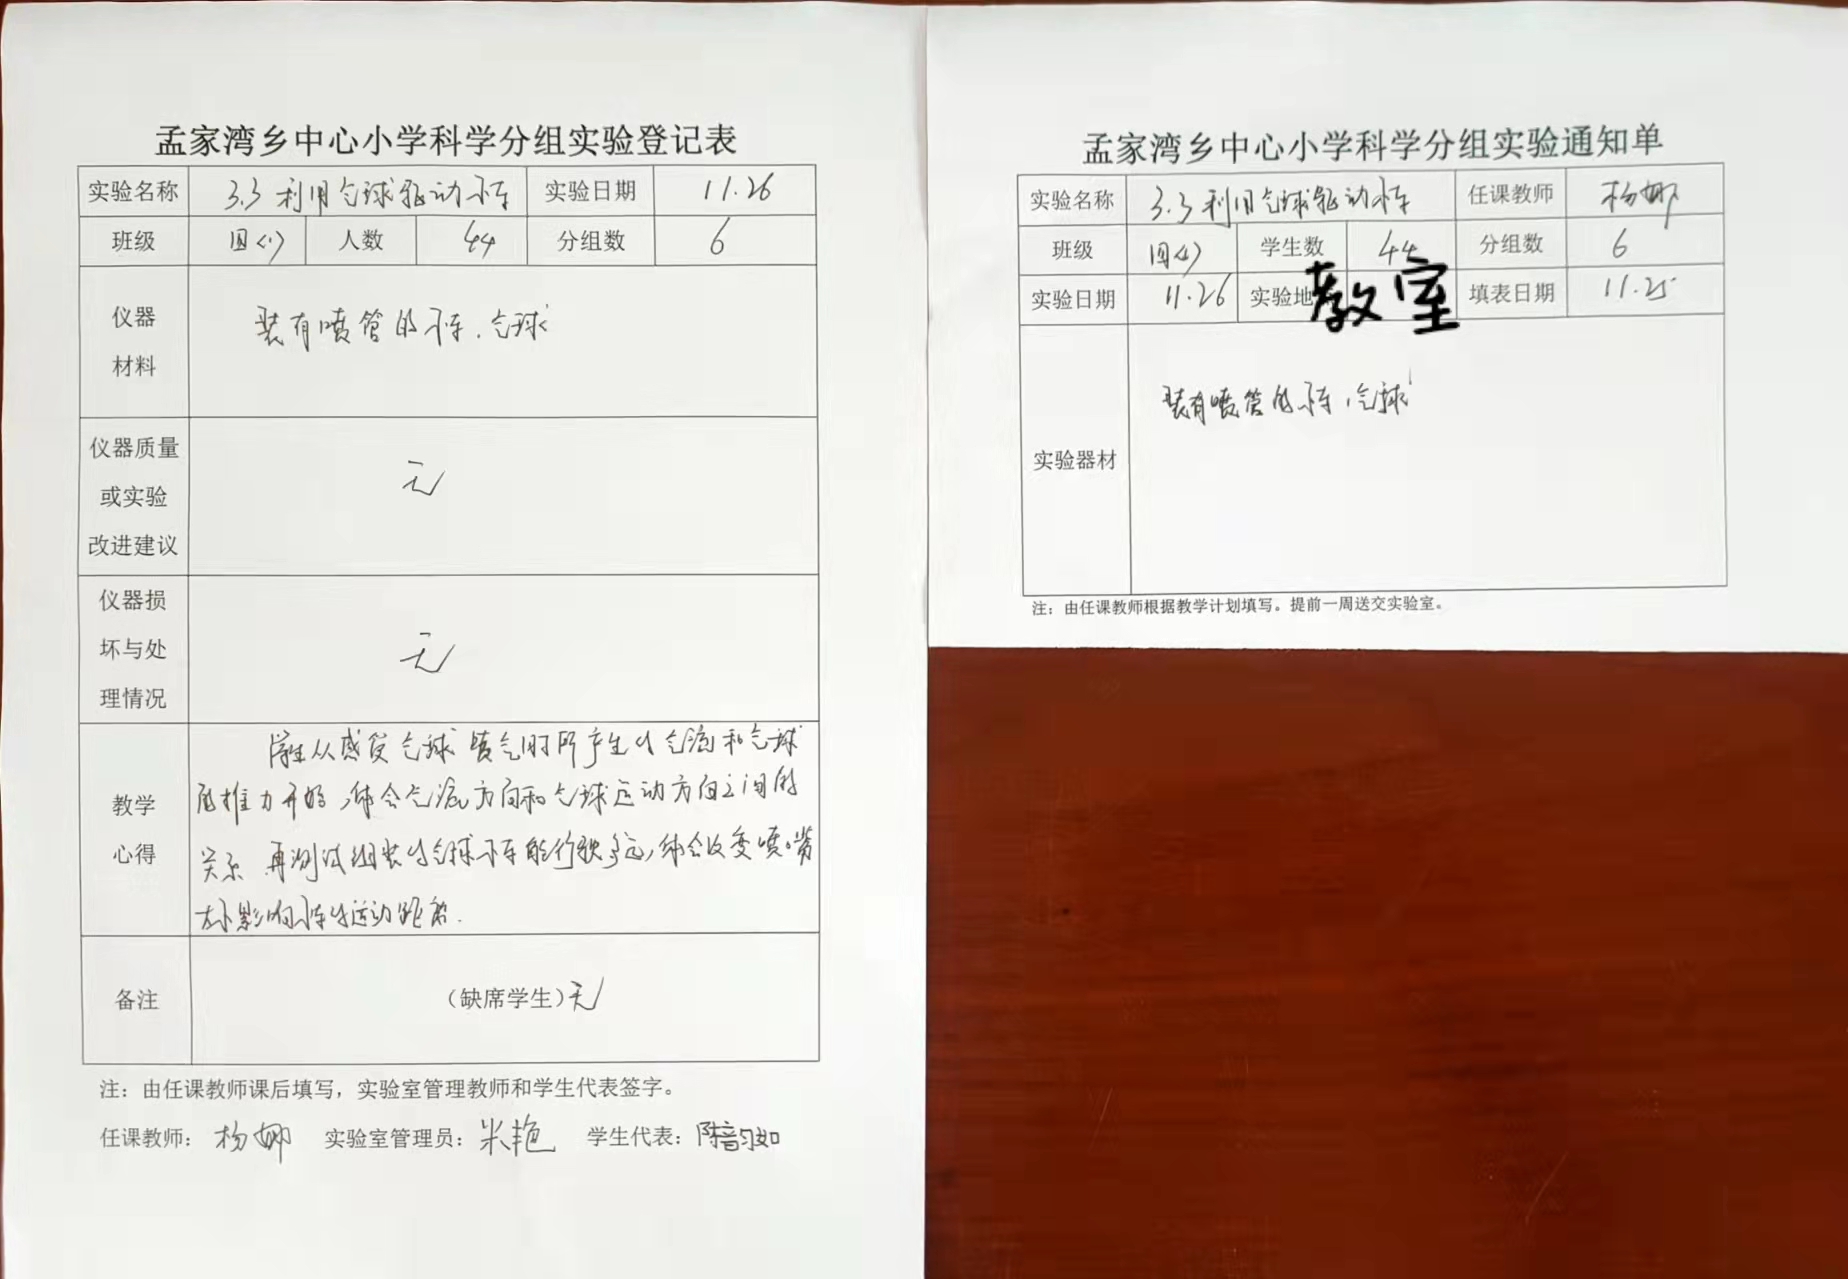 孟家湾乡中心小学科学分组实验登记表
实验名称 3.3 利用气球驱动小车 实验日期 11.26
班级 四(1) 人数 44 分组数 6
仪器
材料
装有喷管的小车、气球
仪器质量
或实验
改进建议
无
仪器损
坏与处
理情况
无
教学
心得
学生从感受气球喷气时所产生的气流和气球
的推力开始,体会气流方向和气球运动方向之间的
关系 再测试组装的气球小车能行驶多远,体会改变喷嘴
大小影响小车的运动距离.
备注 (缺席学生)无
注:由任课教师课后填写,实验室管理教师和学生代表签字。
任课教师: 杨娜 实验室管理员: 米艳 学生代表: 陈韵如
孟家湾乡中心小学科学分组实验通知单
实验名称 3.3利用气球驱动小车 任课教师 杨娜
班级 四(1) 学生数 44 分组数 6
实验日期 11.26 实验地 教室 填表日期 11.25
实验器材
装有喷管的小车,气球
注:由任课教师根据教学计划填写。提前一周送交实验室。